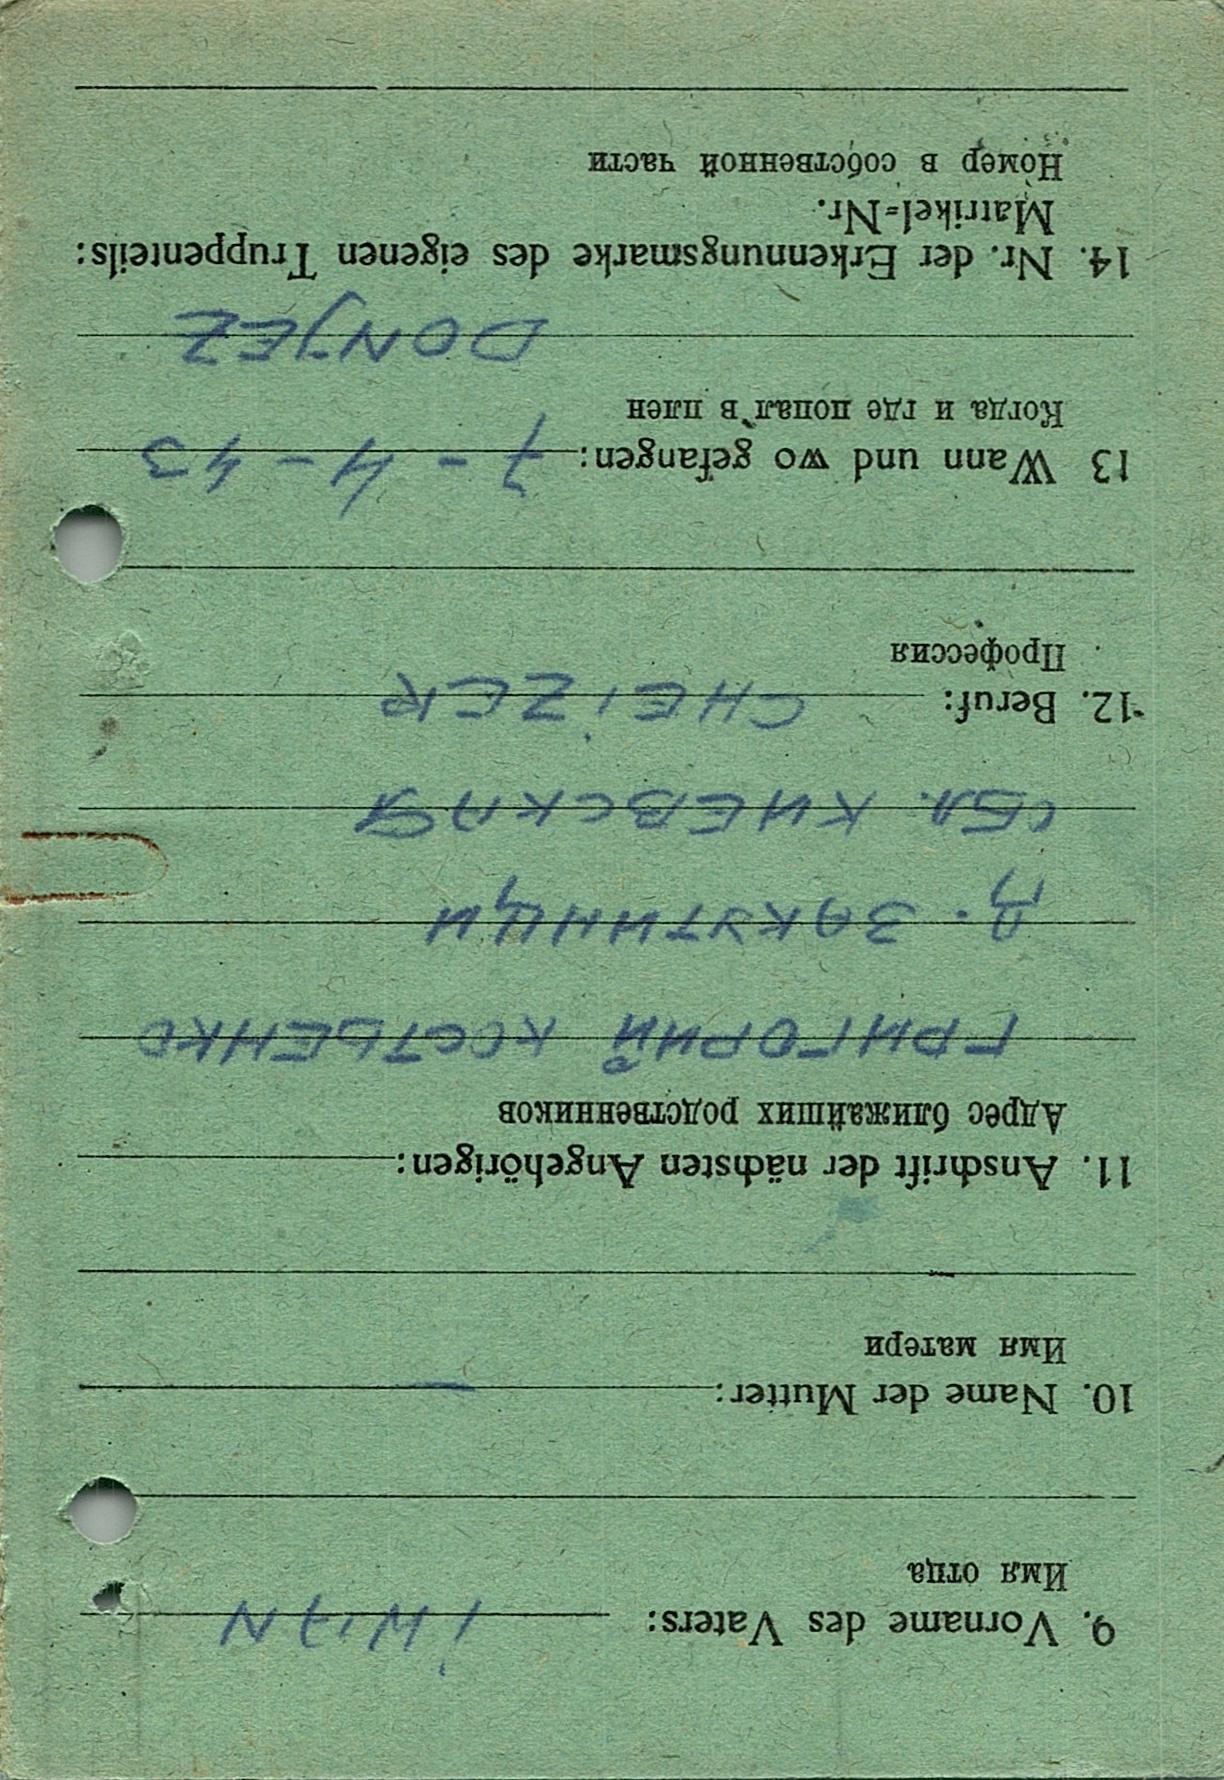 9. Vorname des Vaters: iWAN
Имя отца
10. Name der Mutter: —
Имя матери
11. Anschrift der nächsten Angehörigen:
Адрес ближайших родственников
ГРИГОРИЙ КОСТЬЕНКО
Д. ЗАКУТИНЦИ
ОБЛ. КИЕВСКАЯ
12. Beruf: CHEiZER
Профессия
13 Wann und wo gefangen: 7-4-43
Когда и где попал в плен
DONJEZ
14. Nr. der Erkennungsmarke des eigenen Truppenteils:
Matrikel=Nr.
Номер в собственной части